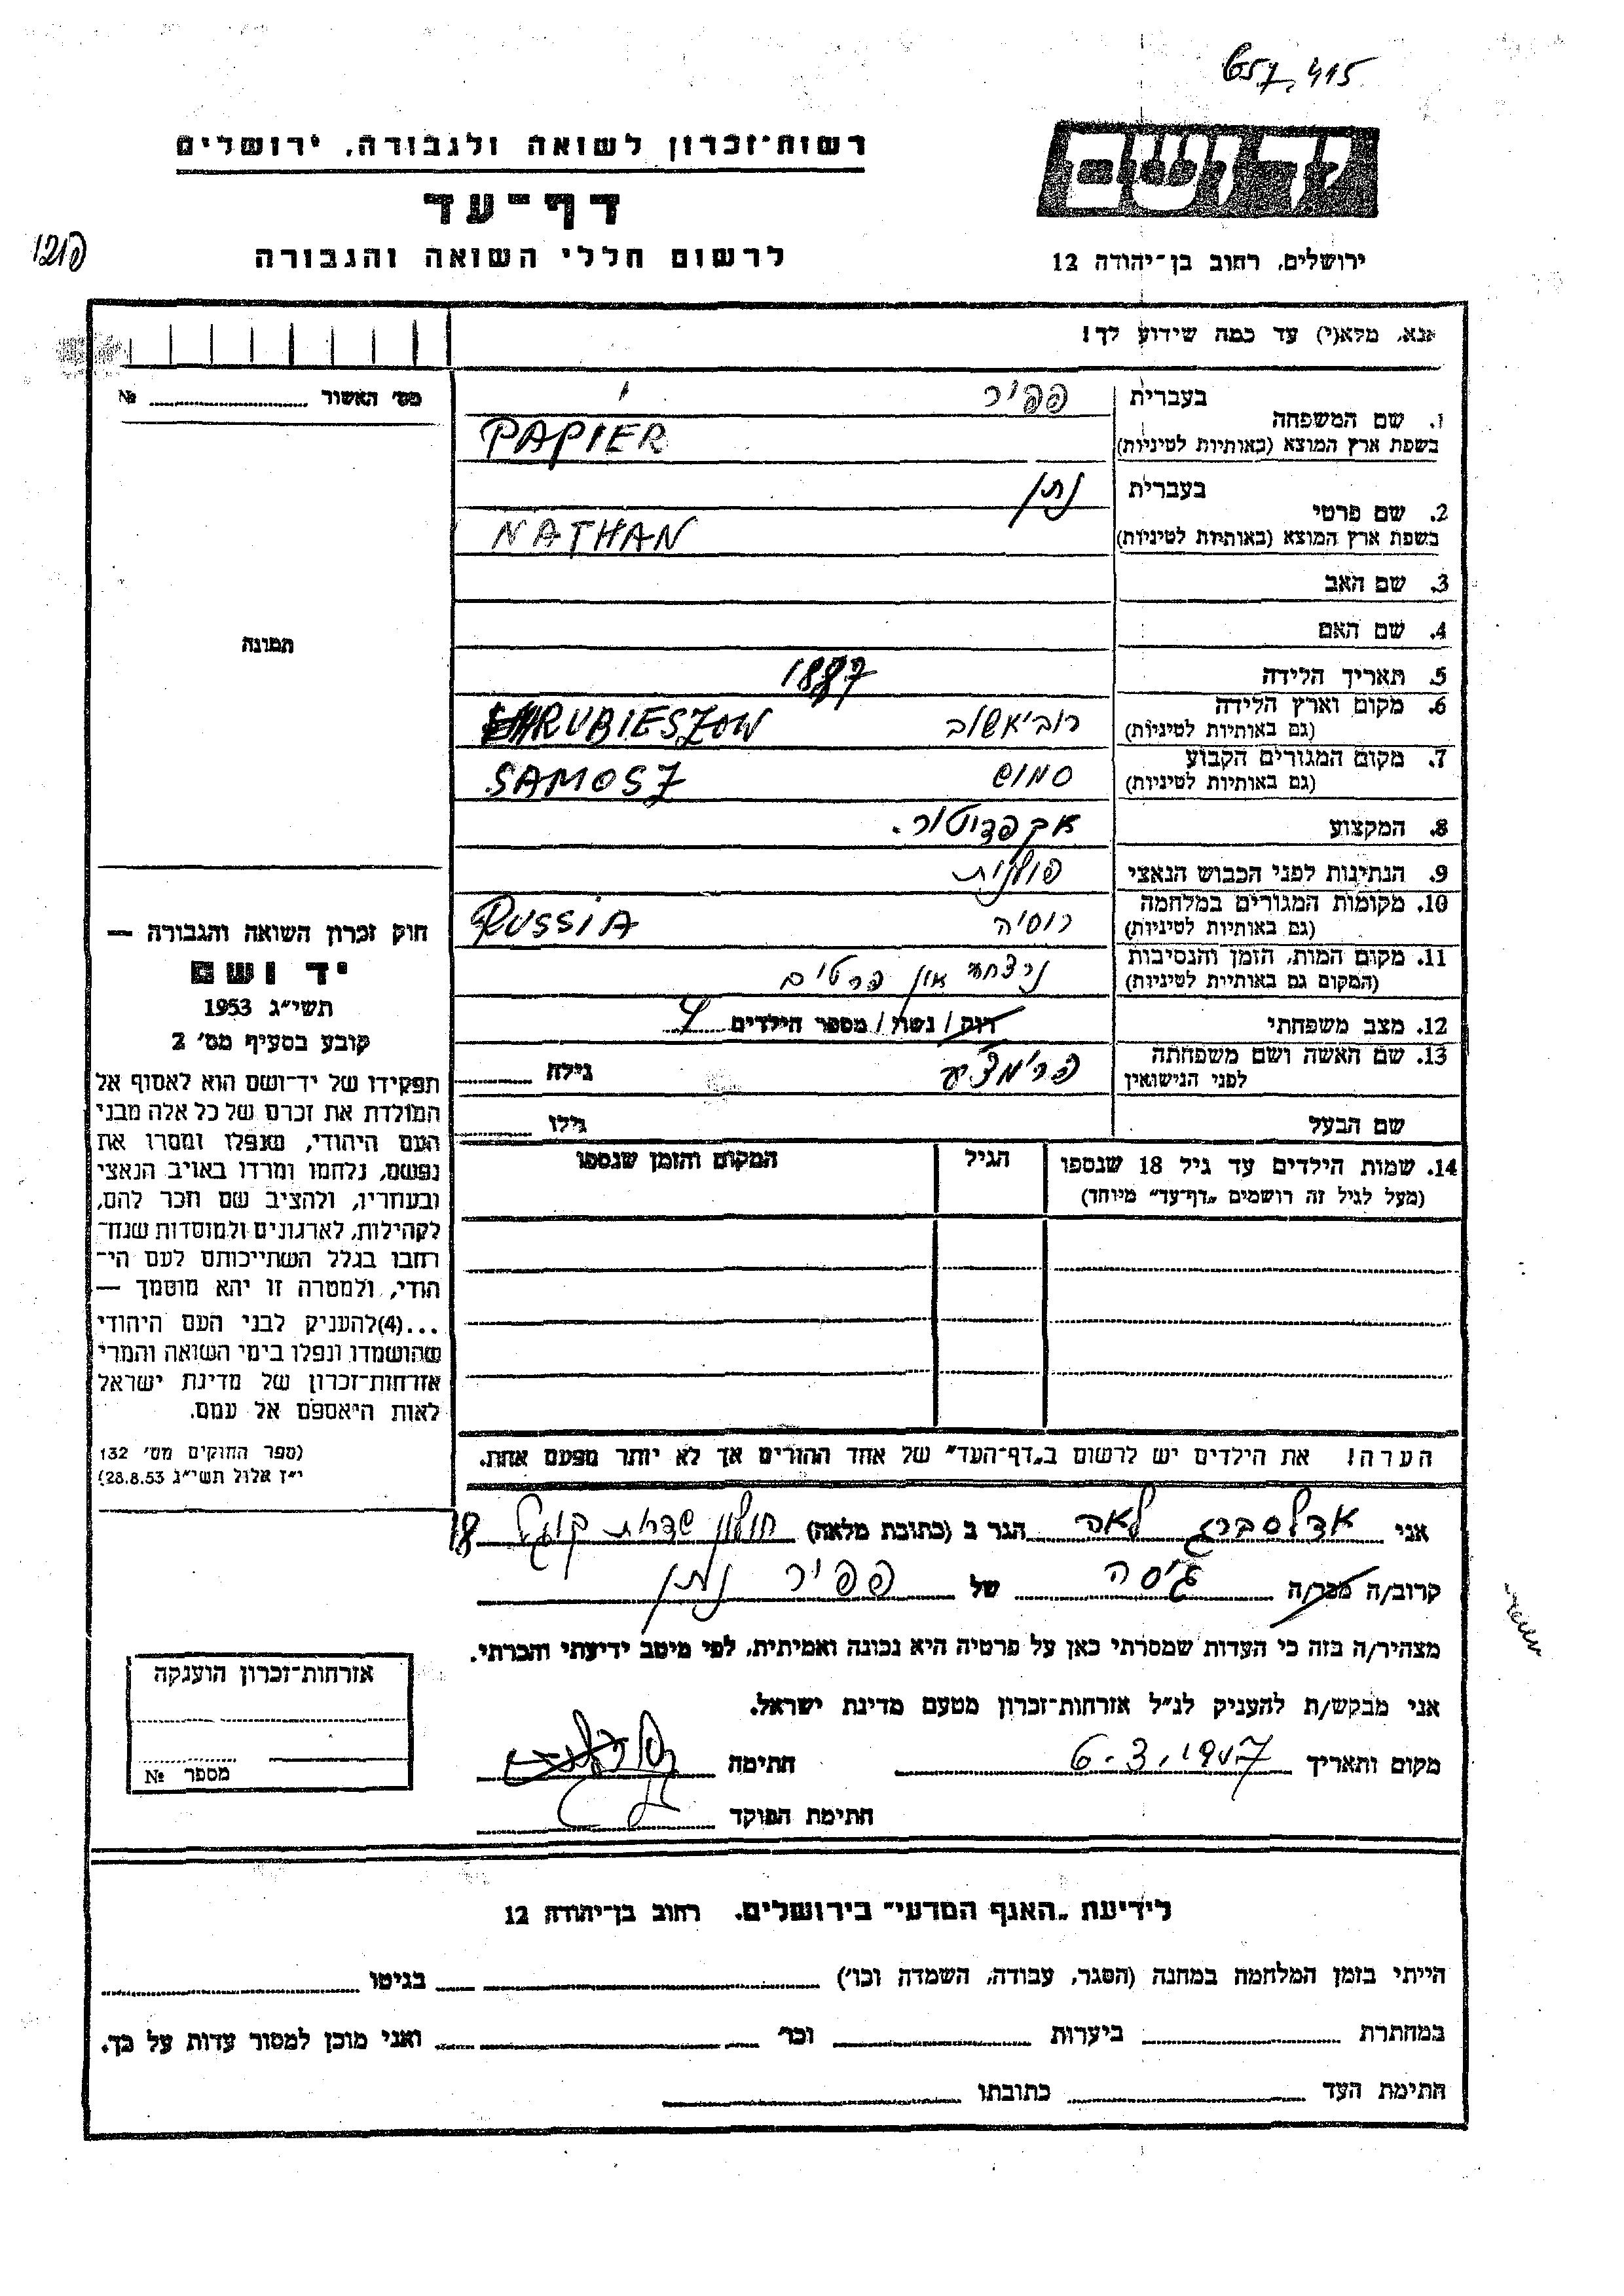 657,415
רשות-זכרון לשואה ולגבורה, ירושלים
דף-עד
לרשום חללי השואה והגבורה
ירושלים, רחוב בן-יהודה 12
אנא, מלא(י) עד כמה שידוע לך!
מס' האשור № 
1. שם המשפחה בעברית פפיר
בשפת ארץ המוצא (באותיות לטיניות) PAPIER
2. שם פרטי בעברית נתן
בשפת ארץ המוצא (באותיות לטיניות) NATHAN
3. שם האב
4. שם האם
תמונה
5. תאריך הלידה 1887
6. מקום וארץ הלידה (גם באותיות לטיניות) רוביאשוב HRUBIESZOW
7. מקום המגורים הקבוע (גם באותיות לטיניות) סמוש SAMOSZ
8. המקצוע אכספדיטור.
9. הנתינות לפני הכבוש הנאצי פולנית
10. מקומות המגורים במלחמה (גם באותיות לטיניות) רוסיה RUSSIA
11. מקום המות, הזמן והנסיבות (המקום גם באותיות לטיניות) נרצחו און פרטים
12. מצב משפחתי רווק / נשוי / מספר הילדים 4
13. שם האשה ושם משפחתה לפני הנישואין גילה
שם הבעל גילו
14. שמות הילדים עד גיל 18 שנספו הגיל המקום והזמן שנספו
(מעל לגיל זה רושמים „דף-עד" מיוחד)
הערה! את הילדים יש לרשום ב„דף-העד" של אחד ההורים אך לא יותר מפעם אחת.
חוק זכרון השואה והגבורה —
יד ושם
תשי"ג 1953
קובע בסעיף מס' 2
תפקידו של יד-ושם הוא לאסוף אל
המולדת את זכרם של כל אלה מבני
העם היהודי, שנפלו ומסרו את
נפשם, נלחמו ומרדו באויב הנאצי
ובעוזריו, ולהציב שם וזכר להם,
לקהילות, לארגונים ולמוסדות שנח-
רבו בגלל השתייכותם לעם הי-
הודי, ולמטרה זו יהא מוסמך —
...(4)להעניק לבני העם היהודי
שהושמדו ונפלו בימי השואה והמרי
אזרחות-זכרון של מדינת ישראל
לאות היאספם אל עמם.
(ספר החוקים מס' 132
י"ז אלול תשי"ג 28.8.53)
אני אדלסברג לאה הגר ב (כתובת מלאה) חולון שדרות קוגל 18
קרוב/ה מכר/ה גיסה של פפיר נתן
מצהיר/ה בזה כי העדות שמסרתי כאן על פרטיה היא נכונה ואמיתית, לפי מיטב ידיעתי והכרתי.
אני מבקש/ת להעניק לנ"ל אזרחות-זכרון מטעם מדינת ישראל.
מקום ותאריך חתימה
חתימת הפוקד
אזרחות-זכרון הוענקה
מספר №
לידיעת „האגף המדעי" בירושלים, רחוב בן-יהודה 12
הייתי בזמן המלחמה במחנה (הסגר, עבודה, השמדה וכו') בגיטו
במחתרת ביערות וכו' ואני מוכן למסור עדות על כך.
חתימת העד כתובתו